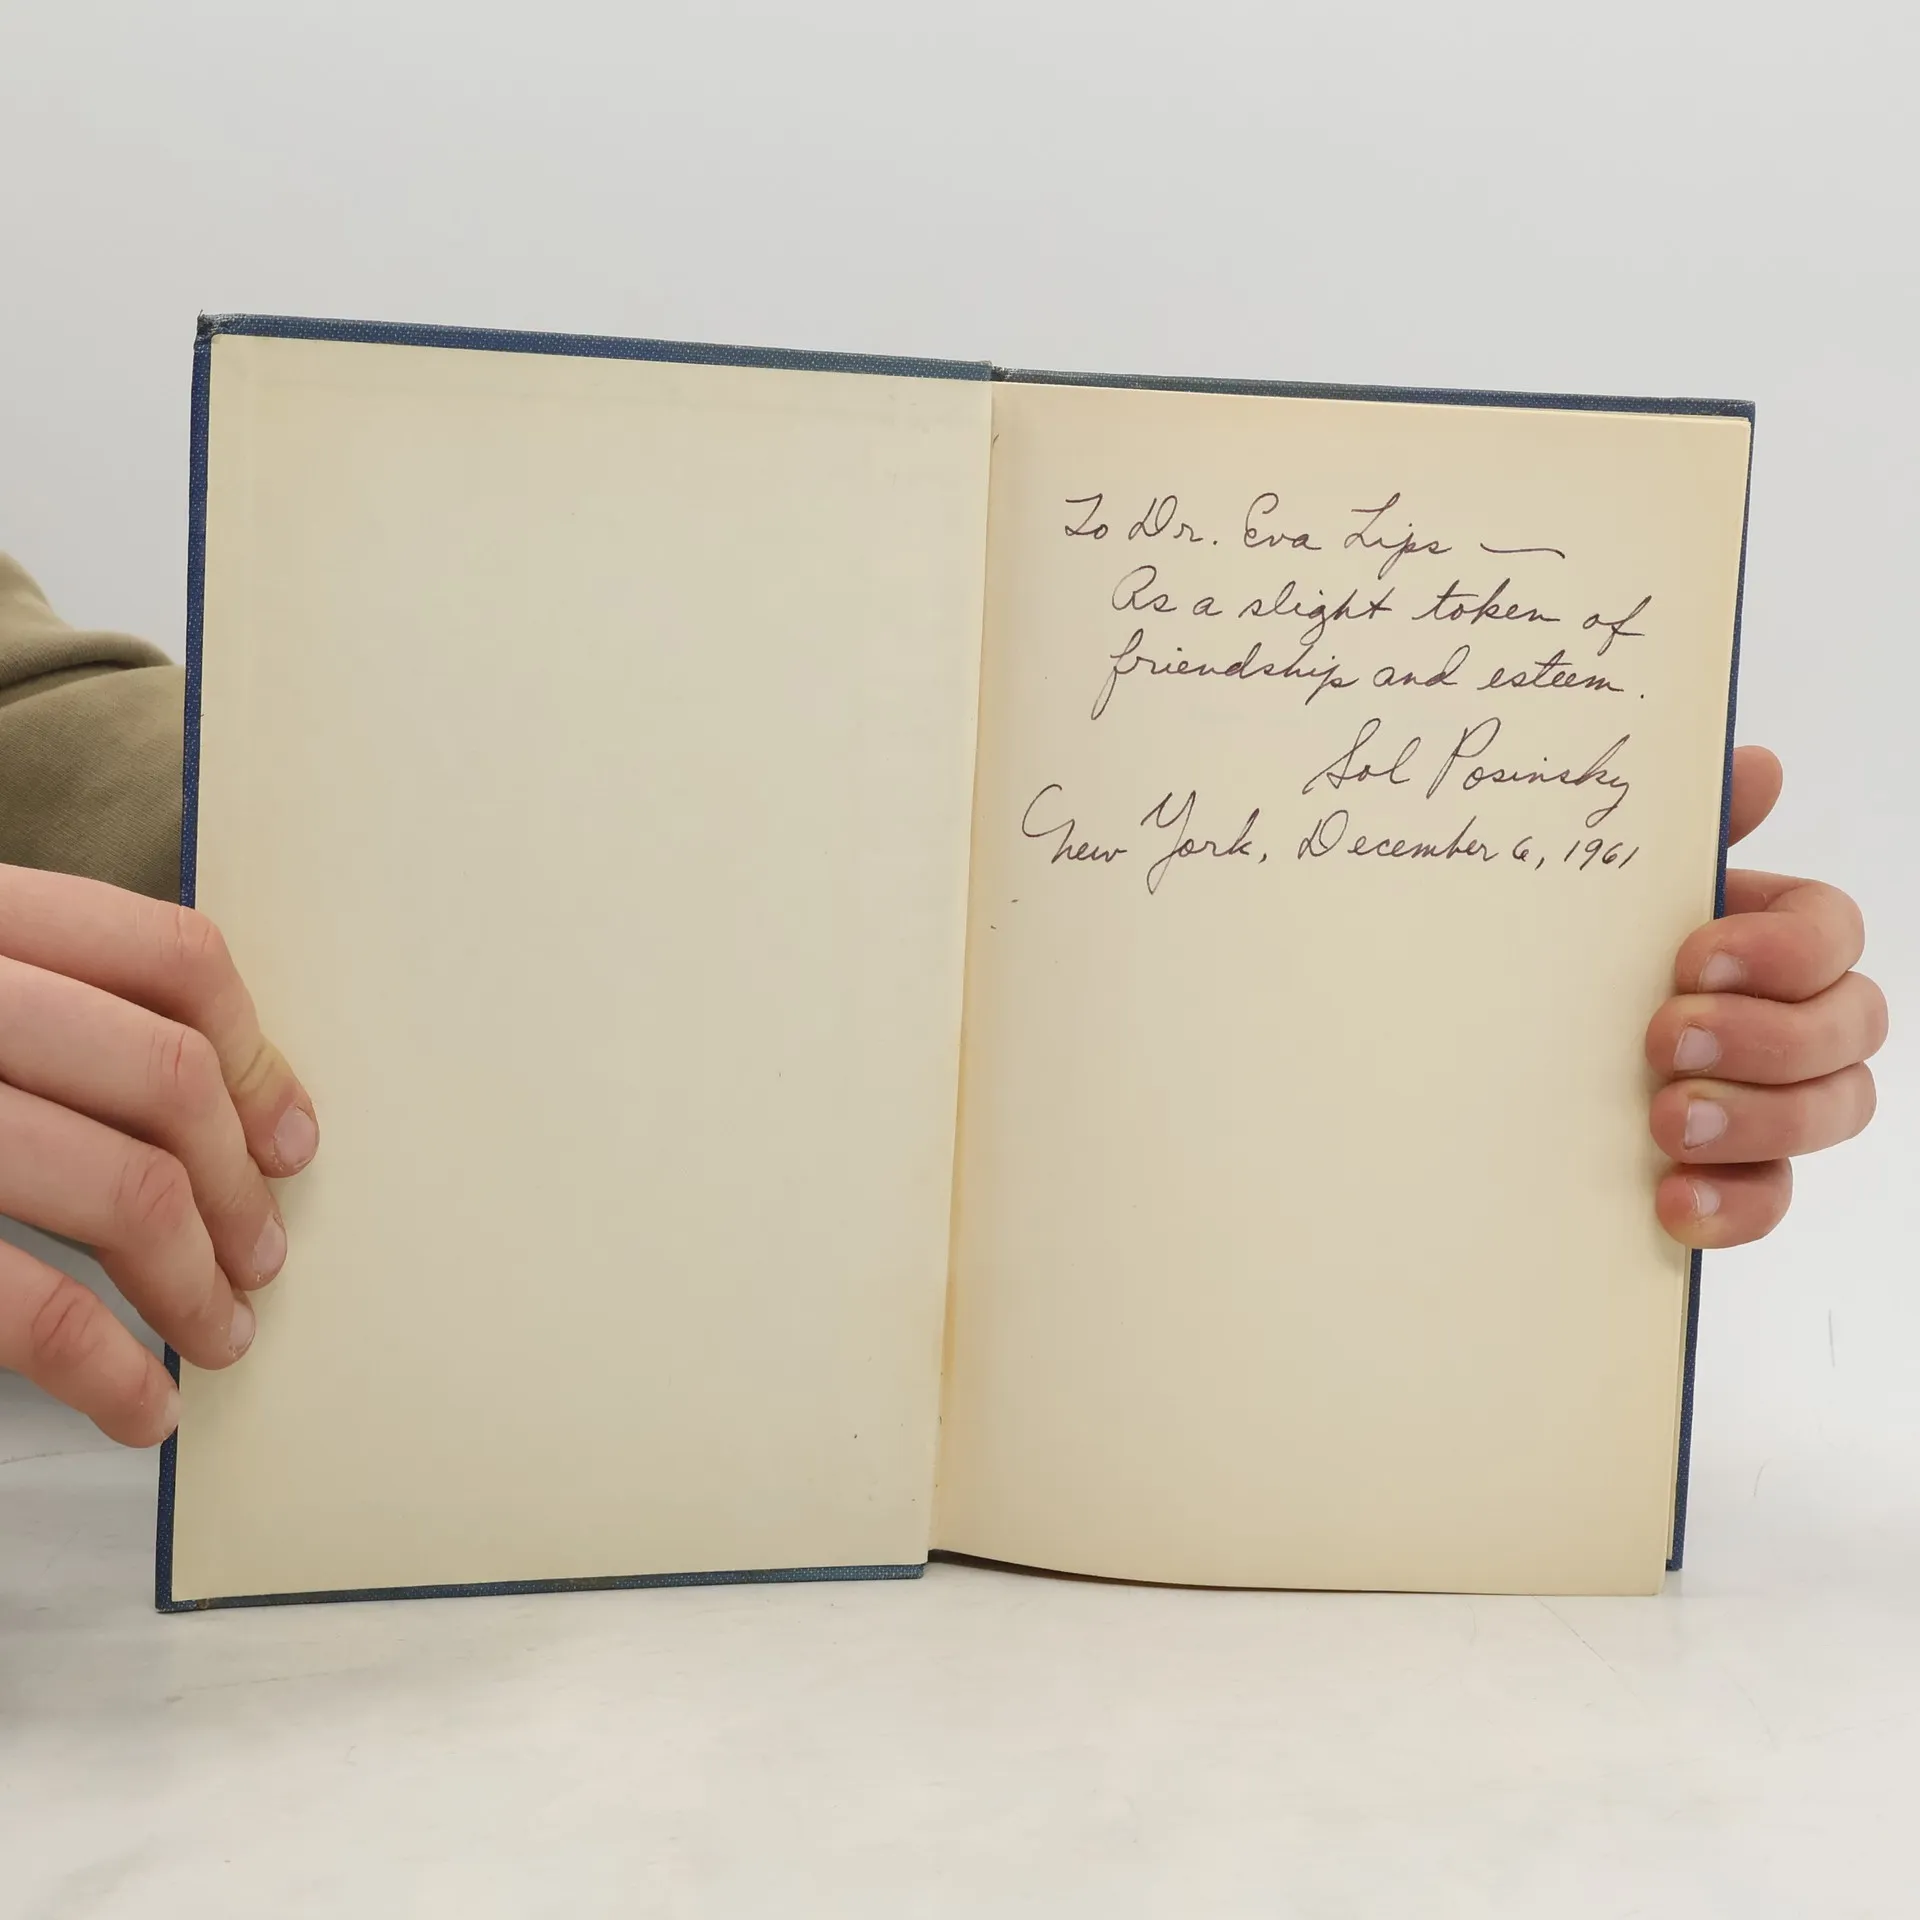 To Dr. Eva Lips —
As a slight token of
friendship and esteem.
Sol Posinsky
New York, December 6, 1961